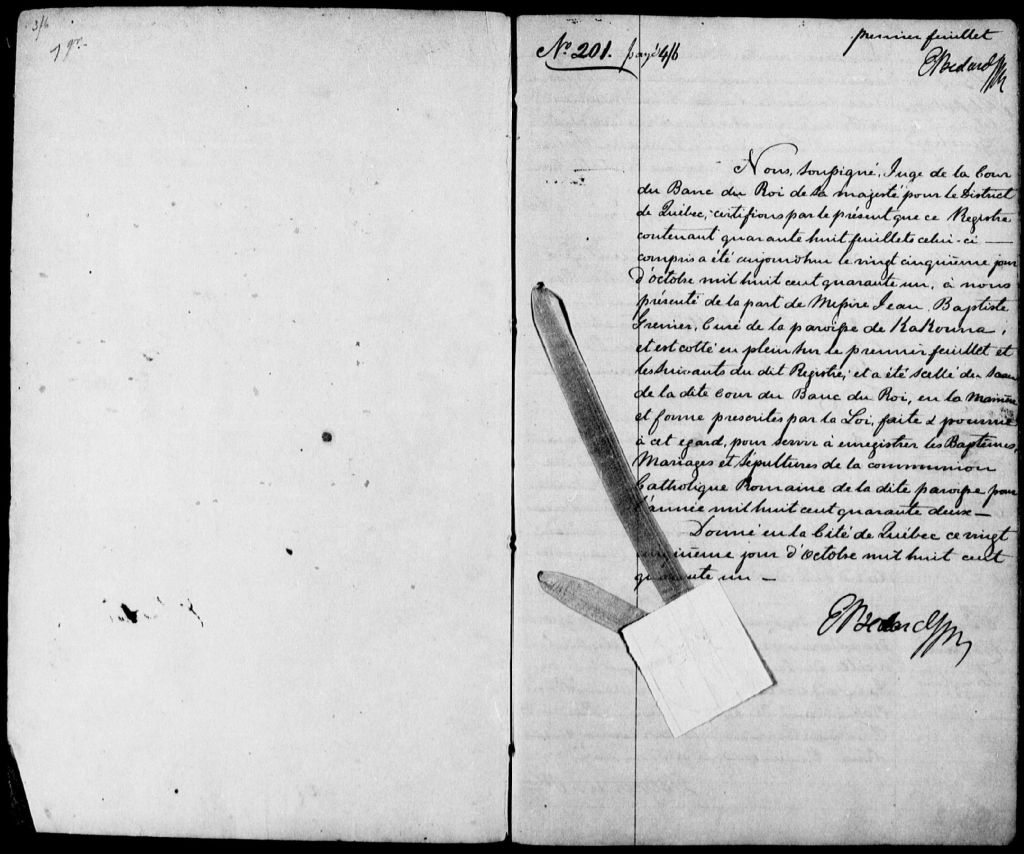 3/6
N.º 201. payé 4/6
premier feuillet
E Bedard
Nous, Soussigné, Juge de la Cour
du Banc du Roi de Sa majesté pour le District
de Québec, certifions par le présent que ce Registre
contenant quarante huit feuillets celui-ci —
compris a été aujourd'hui le vingt cinquième jour
d'octobre mil huit cent quarante un, à nous
présenté de la part de Messire Jean Baptiste
Grenier, Curé de la paroisse de Kakouna,
et est cotté en plein sur le premier feuillet et
les suivants du dit Registre, et a été scellé du Sceau
de la dite Cour du Banc du Roi, en la Manière
et forme prescrites par la Loi, faite & pourvue
à cet egard, pour servir à enregistrer les Baptêmes,
Mariages et Sépultures de la communion
Catholique Romaine de la dite paroisse pour
l'année mil huit cent quarante deux —
Donné en la Cité de Québec ce vingt
cinquième jour d'Octobre mil huit cent
quarante un —
E Bedard